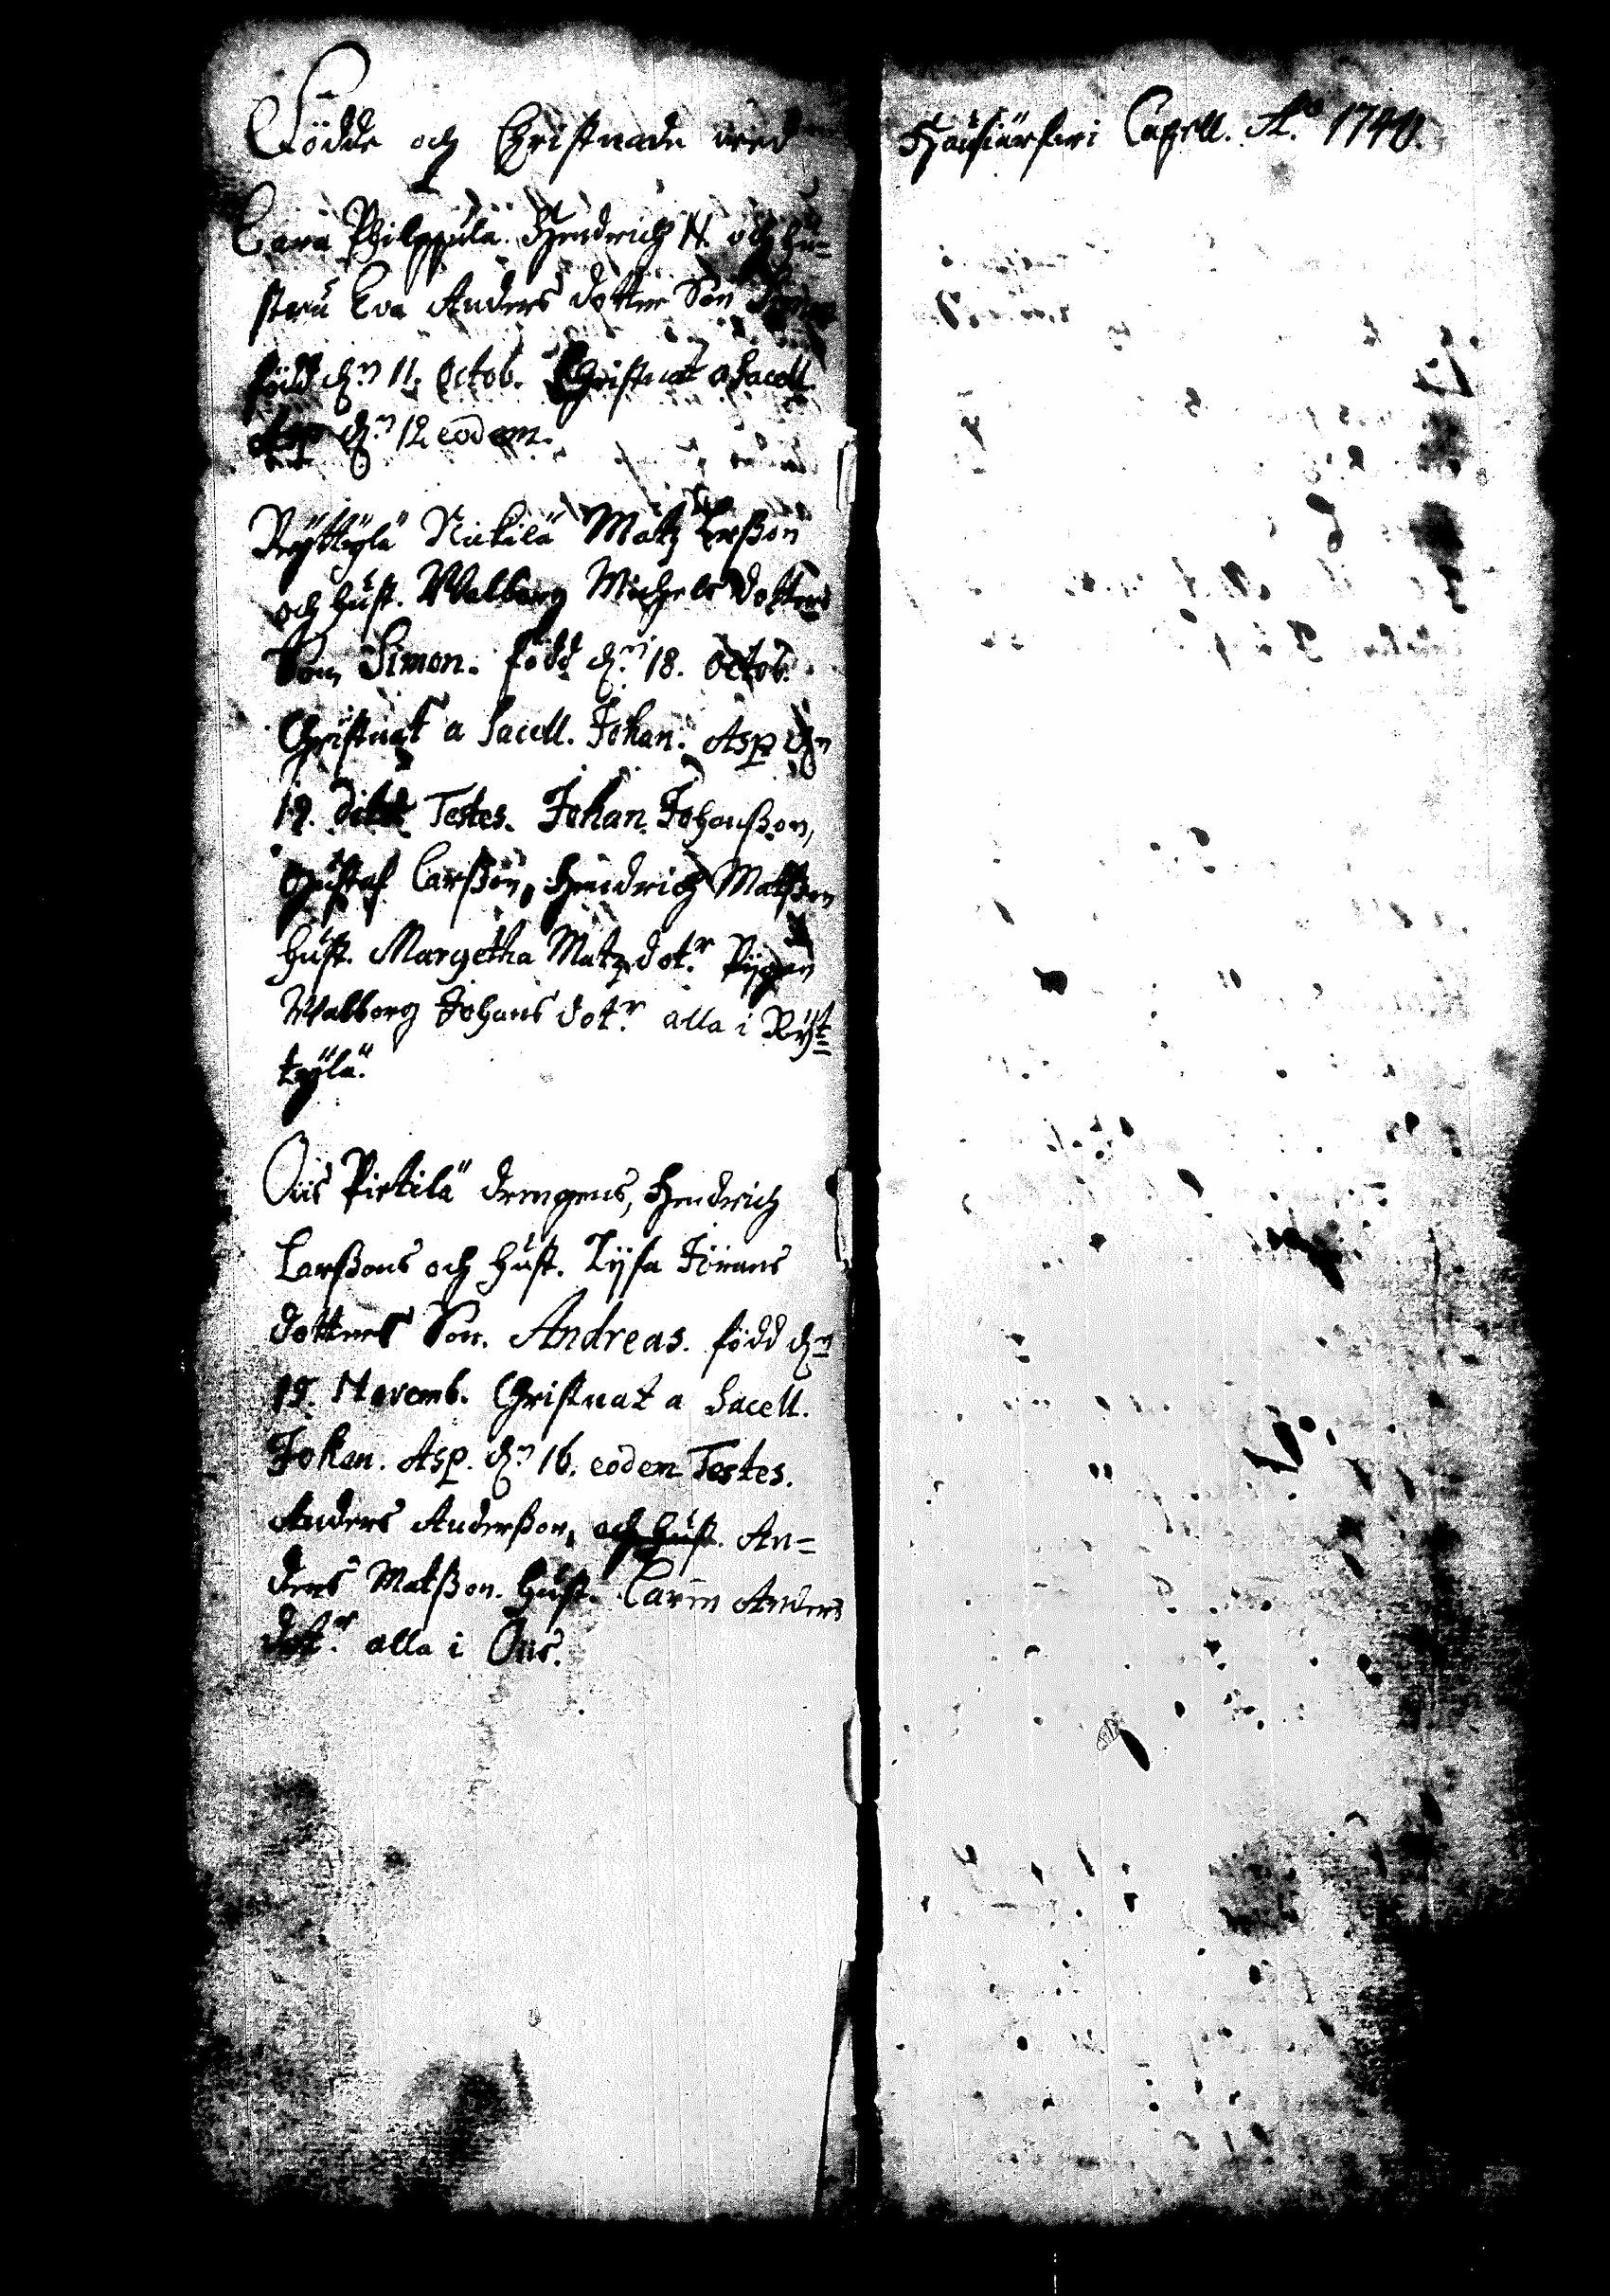 Födde och Christnade wed Hausiärfwi Capell. Ao 1740.
Cara Philppula. Hendrich N. och hu-
stru Eva Anders dotter Son
född dn 11 Octob. Christnat a Sacell.
Asp dn 12 eodem.
Ryttylä Nickilä Matz Erßon
och hust. Walborg Michels dotters
Son Simon. född dn 18. Octob.
Christnat a Sacell. Johan. Asp dn
19. dito Testes. Johan Johanßon,
Gustaf Carßon, Hendrich Matßon
hust. Margetha Matz dotr. Pigan
Walborg Johans dotr. alla i Ryt=
tylä.
Oiis Pietilä drengens, Hendrich
Larßons och hust. Lysa Jörans
dotters Son. Andreas. född dn
15. Novemb. Christnat a Sacell.
Johan. Asp. dn 16. eodem Testes.
Anders Anderßon, och hust. An=
ders Matßon. hust. Carin Anders
dotr. alla i Oiis.